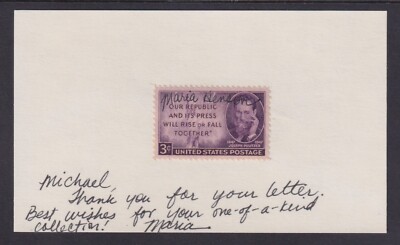 Maria Henson
"OUR REPUBLIC
AND ITS PRESS
WILL RISE OR FALL
TOGETHER"
JOSEPH PULITZER
3¢ UNITED STATES POSTAGE
Michael,
Thank you for your letter.
Best wishes for your one-of-a-kind
collection! Maria